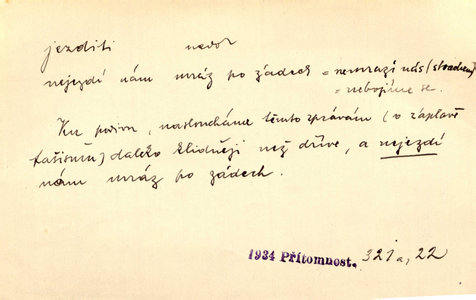 jezditi nedok
nejezdí nám mráz po zádech = nemrazí nás (strachem)
= nebojíme se.
Ku podivu, nasloucháme těmto zprávám (o záplavě
fašismu) daleko klidněji než dříve, a nejezdí
nám mráz po zádech.
1934 Přítomnost. 321a, 22